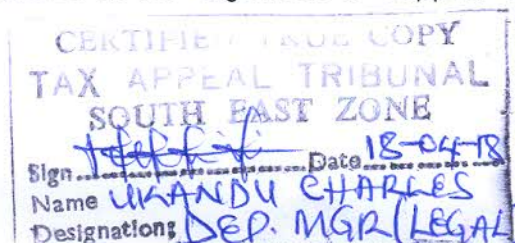 CERTIFIED TRUE COPY
TAX APPEAL TRIBUNAL
SOUTH EAST ZONE
Sign Date 18-04-18
Name UKANDU CHARLES
Designation: DEP. MGR (LEGAL